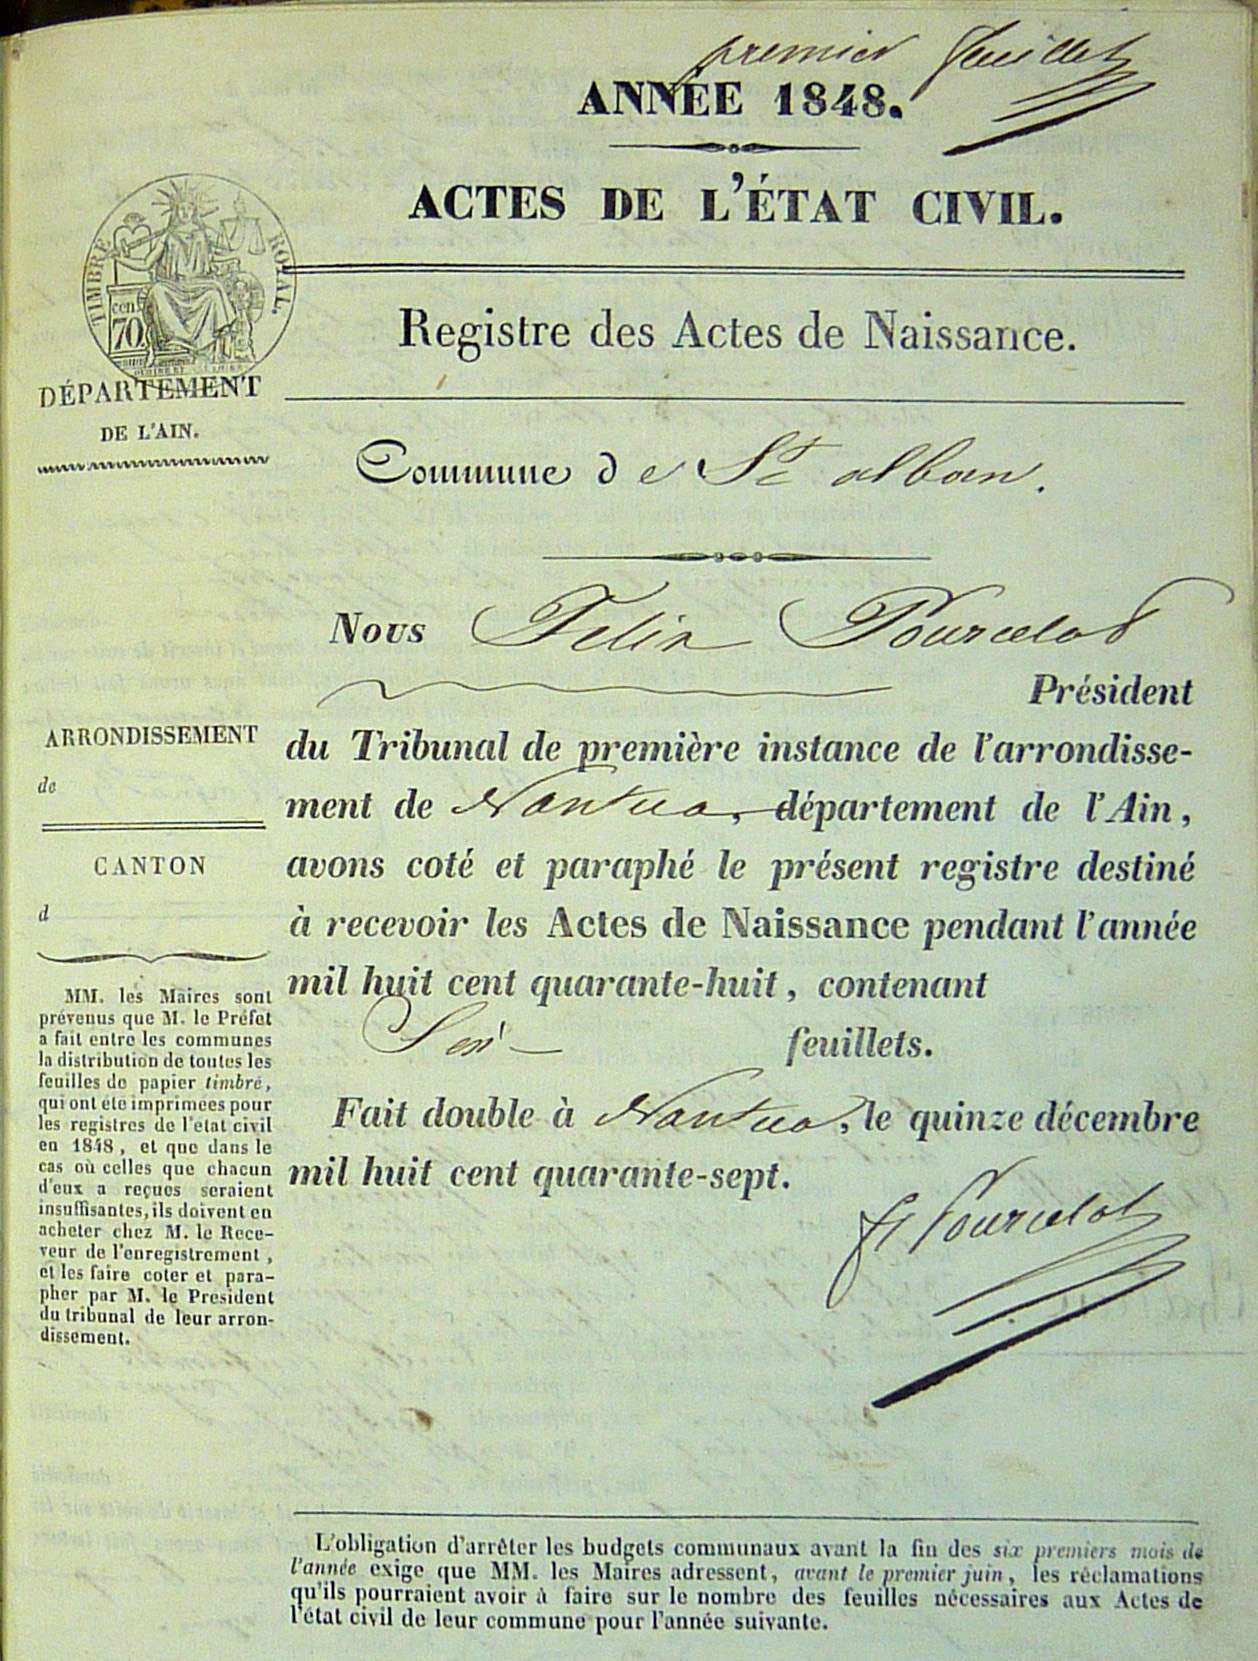 premier feuillet
ANNÉE 1848.
ACTES DE L'ÉTAT CIVIL.
TIMBRE ROYAL.
cen.
70
Registre des Actes de Naissance.
DÉPARTEMENT
DE L'AIN.
Commune de St alban.
Nous Felix Pourcelot
Président
du Tribunal de première instance de l'arrondisse-
ment de Nantua, département de l'Ain,
avons coté et paraphé le présent registre destiné
à recevoir les Actes de Naissance pendant l'année
mil huit cent quarante-huit, contenant
feuillets.
Fait double à Nantua, le quinze décembre
mil huit cent quarante-sept.
Pourcelot
ARRONDISSEMENT
de
CANTON
d
MM. les Maires sont
prévenus que M. le Préfet
a fait entre les communes
la distribution de toutes les
feuilles de papier timbré,
qui ont été imprimées pour
les registres de l'état civil
en 1848, et que dans le
cas où celles que chacun
d'eux a reçues seraient
insuffisantes, ils doivent en
acheter chez M. le Rece-
veur de l'enregistrement,
et les faire coter et para-
pher par M. le Président
du tribunal de leur arron-
dissement.
L'obligation d'arrêter les budgets communaux avant la fin des six premiers mois de
l'année exige que MM. les Maires adressent, avant le premier juin, les réclamations
qu'ils pourraient avoir à faire sur le nombre des feuilles nécessaires aux Actes de
l'état civil de leur commune pour l'année suivante.